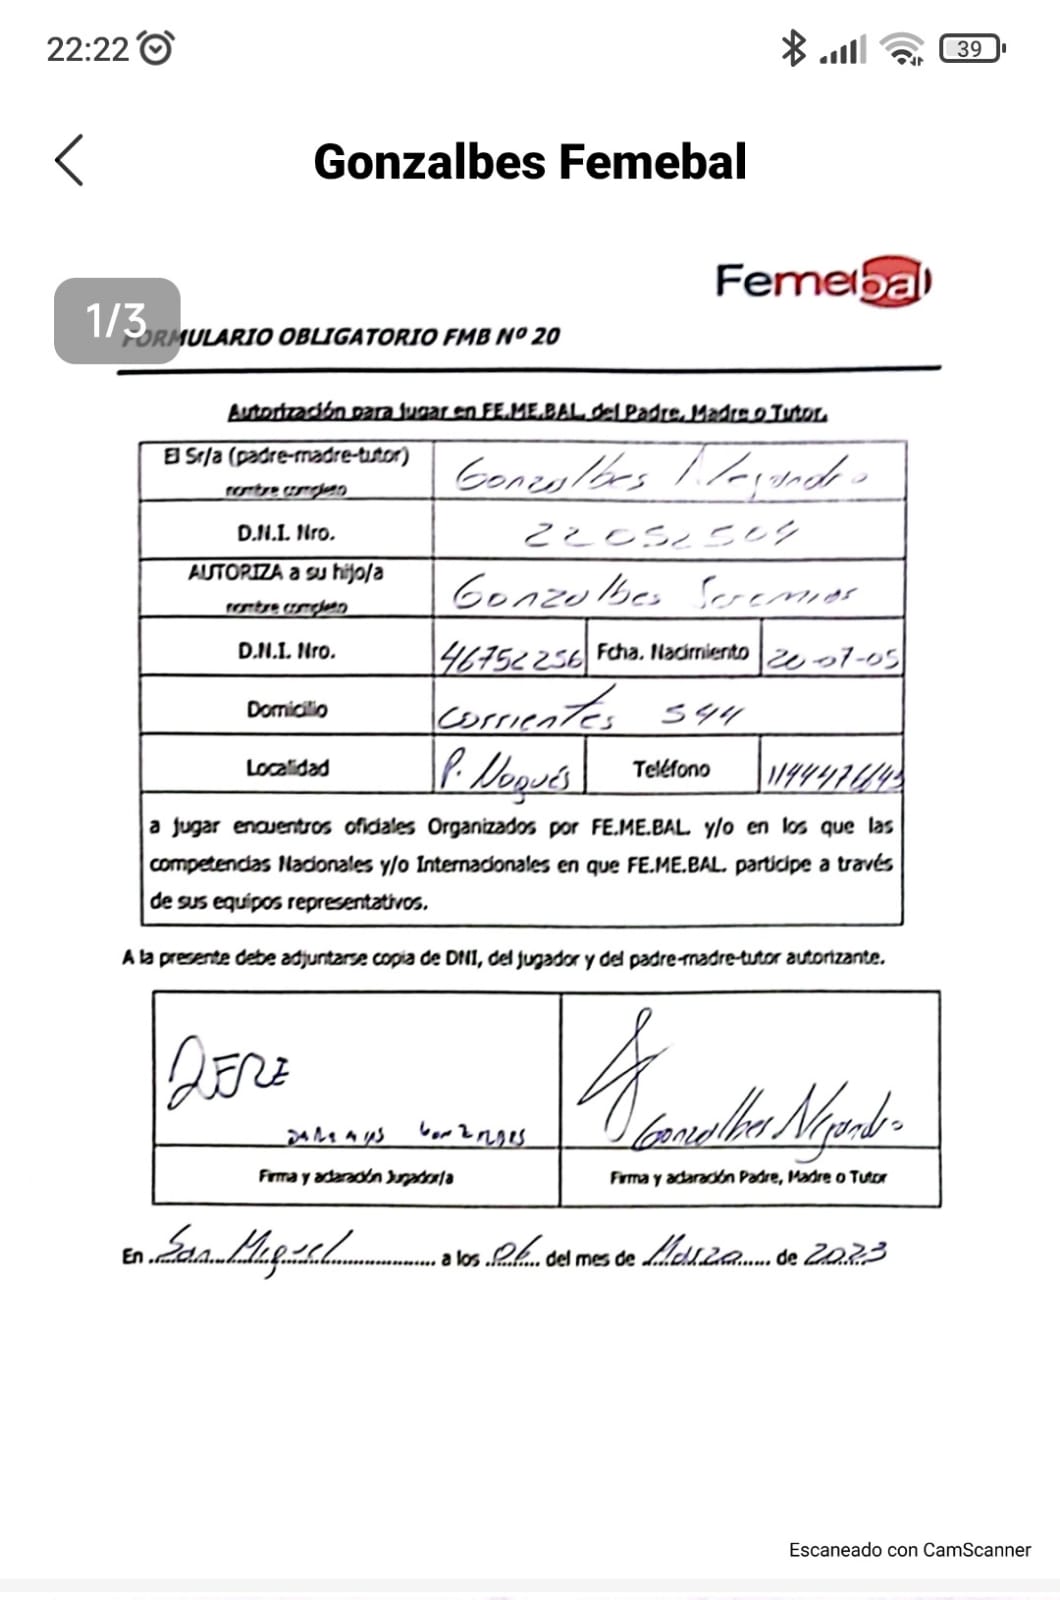 22:22 39
Gonzalbes Femebal
Femebal
1/3
FORMULARIO OBLIGATORIO FMB Nº 20
Autorización para jugar en FE.ME.BAL. del Padre, Madre o Tutor.
El Sr/a (padre-madre-tutor) nombre completo Gonzalbes Alejandro
D.N.I. Nro. 22052504
AUTORIZA a su hijo/a nombre completo Gonzalbes Jeremias
D.N.I. Nro. 46752256 Fcha. Nacimiento 20-07-05
Domicilio Corrientes 544
Localidad P. Nogués Teléfono
a jugar encuentros oficiales Organizados por FE.ME.BAL. y/o en los que las
competencias Nacionales y/o Internacionales en que FE.ME.BAL. participe a través
de sus equipos representativos.
A la presente debe adjuntarse copia de DNI, del jugador y del padre-madre-tutor autorizante.
JERE
Gonzalbes Alejandro
Firma y aclaración Jugador/a Firma y aclaración Padre, Madre o Tutor
En San Miguel a los 06 del mes de Marzo de 2023
Escaneado con CamScanner